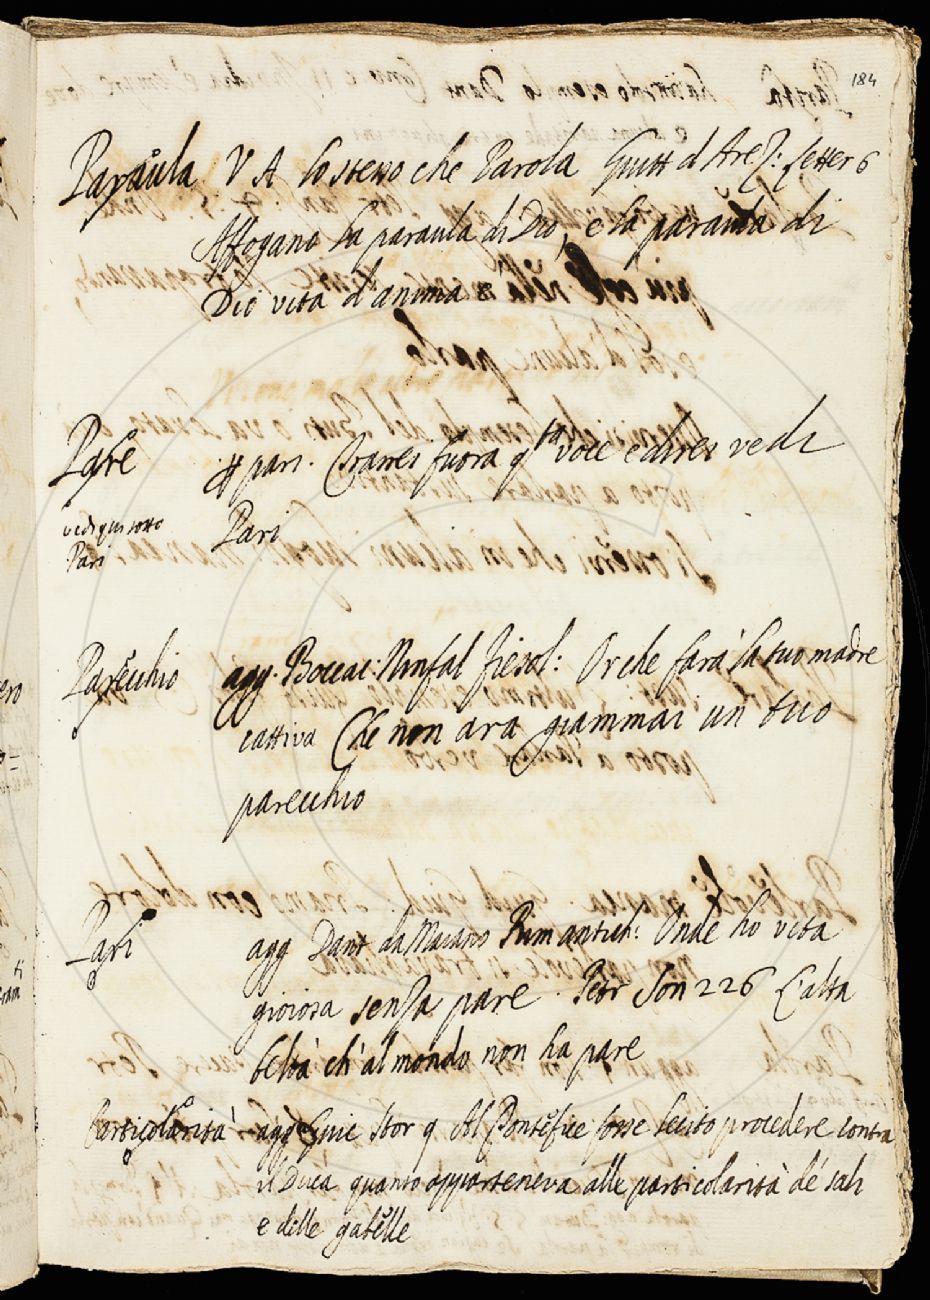 184
Paraula V A lo stesso che Parola Guitt d'Arez: Letter 6
Affogano la paraula di Dio, e la paraula di
Dio vita d'anima è
Pare # pari. Trarre fuora q.ta voce e dires vedi
Pari
vedi qui sotto
Pari
Parecchio agg. Boccac. Ninfal Fiesol: Or che farà la tuo madre
cattiva Che non arà giammai un tuo
parecchio
Pari agg Dant da Maiano Rim antich: Onde ho vita
gioiosa senza pare. Petr Son 226 L'alta
beltà ch'al mondo non ha pare
Particolarità agg Guic Stor 9 Al Pontefice fosse lecito procedere contra
il Duca quanto apparteneva alle particolarità de' sali
e delle gabelle